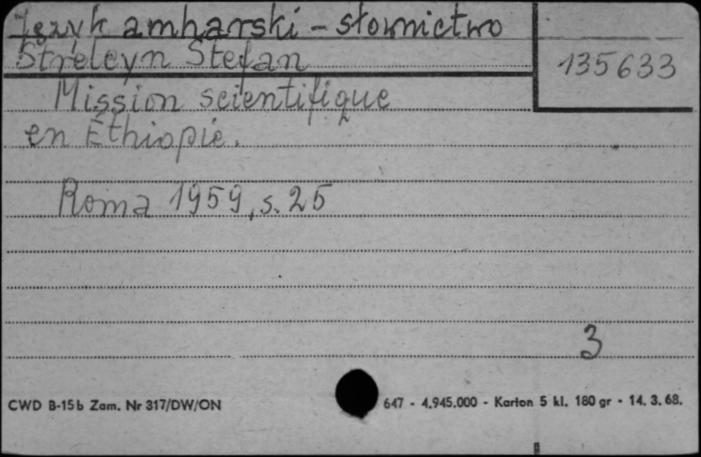 Język amharski - słownictwo
Strelcyn Stefan
135633
Mission scientifique
en Éthiopie.
Roma 1959, s. 25
3
CWD B-15b Zam. Nr 317/DW/ON
647 - 4.945.000 - Karton 5 kl. 180 gr - 14. 3. 68.